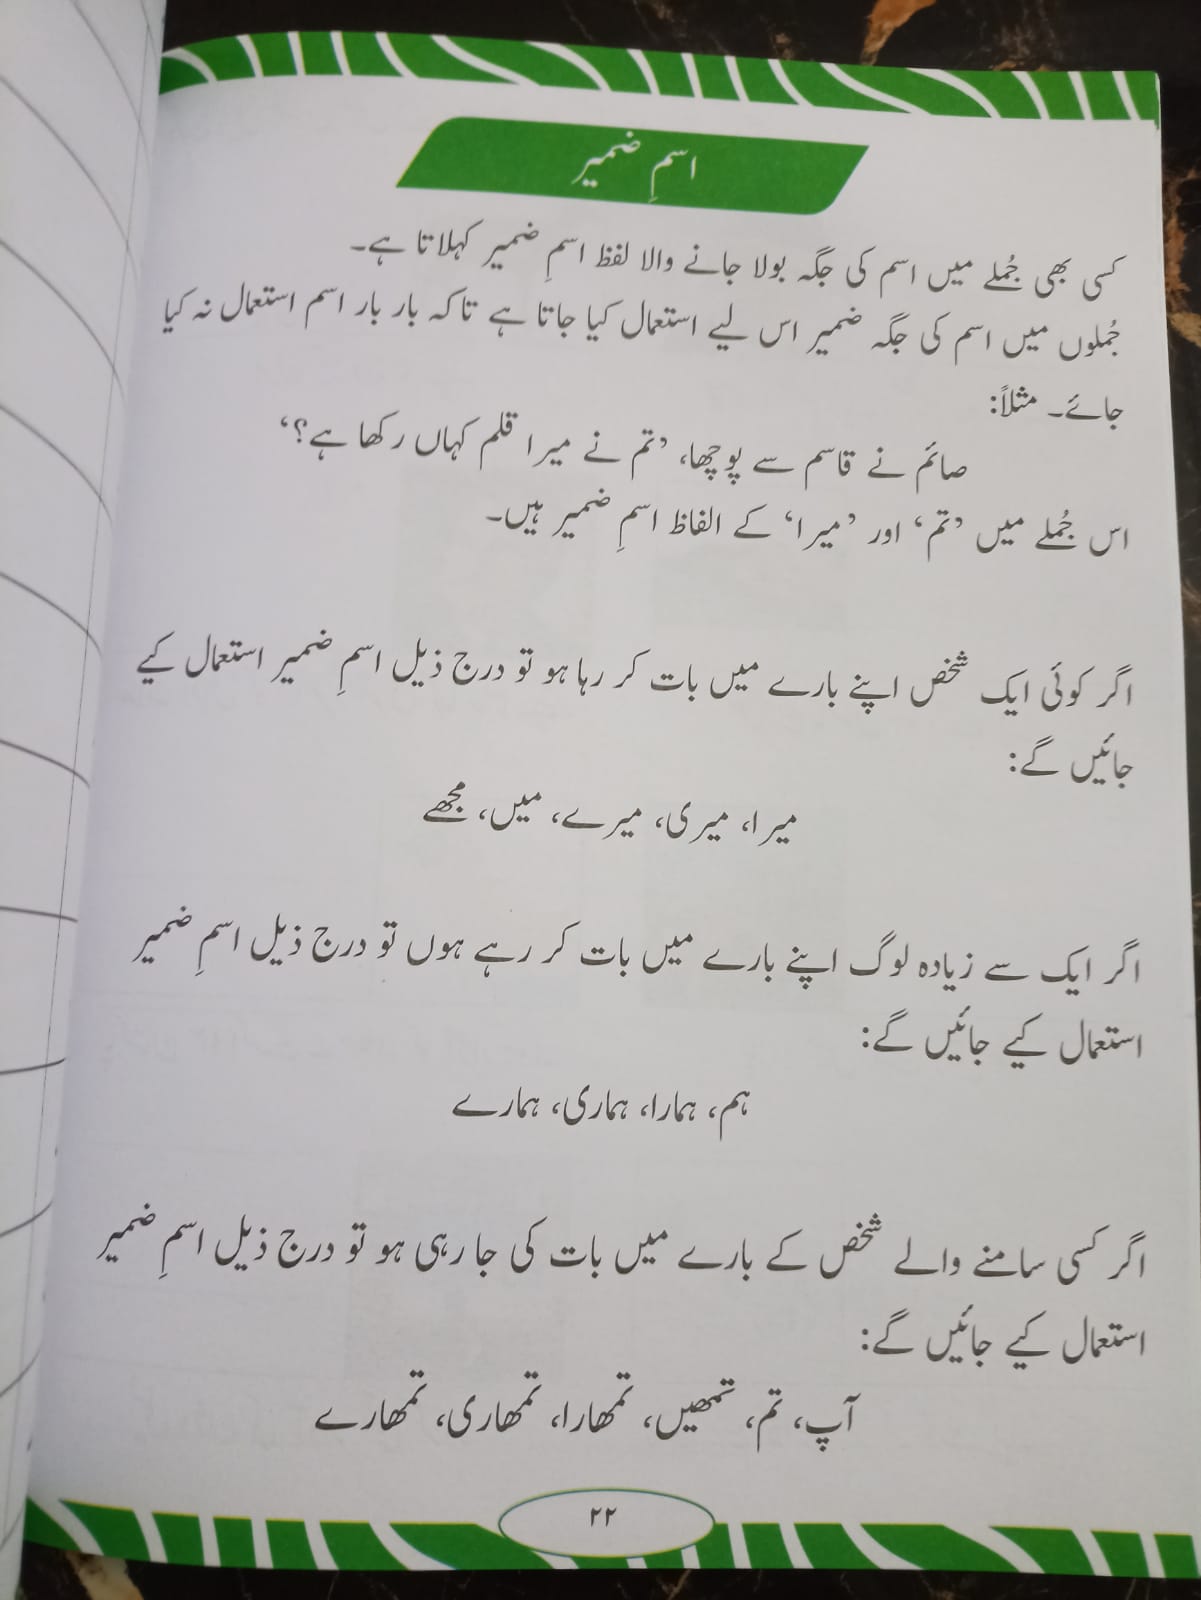 اسمِ ضمیر
کسی بھی جُملے میں اسم کی جگہ بولا جانے والا لفظ اسمِ ضمیر کہلاتا ہے۔
جُملوں میں اسم کی جگہ ضمیر اس لیے استعمال کیا جاتا ہے تاکہ بار بار اسم استعمال نہ کیا
جائے۔ مثلاً:
صائم نے قاسم سے پوچھا، ’تم نے میرا قلم کہاں رکھا ہے؟‘
اس جُملے میں ’تم‘ اور ’میرا‘ کے الفاظ اسمِ ضمیر ہیں۔
اگر کوئی ایک شخص اپنے بارے میں بات کر رہا ہو تو درج ذیل اسمِ ضمیر استعمال کیے
جائیں گے:
میرا، میری، میرے، میں، مجھے
اگر ایک سے زیادہ لوگ اپنے بارے میں بات کر رہے ہوں تو درج ذیل اسمِ ضمیر
استعمال کیے جائیں گے:
ہم، ہمارا، ہماری، ہمارے
اگر کسی سامنے والے شخص کے بارے میں بات کی جا رہی ہو تو درج ذیل اسمِ ضمیر
استعمال کیے جائیں گے:
آپ، تم، تمھیں، تمھارا، تمھاری، تمھارے
۲۲